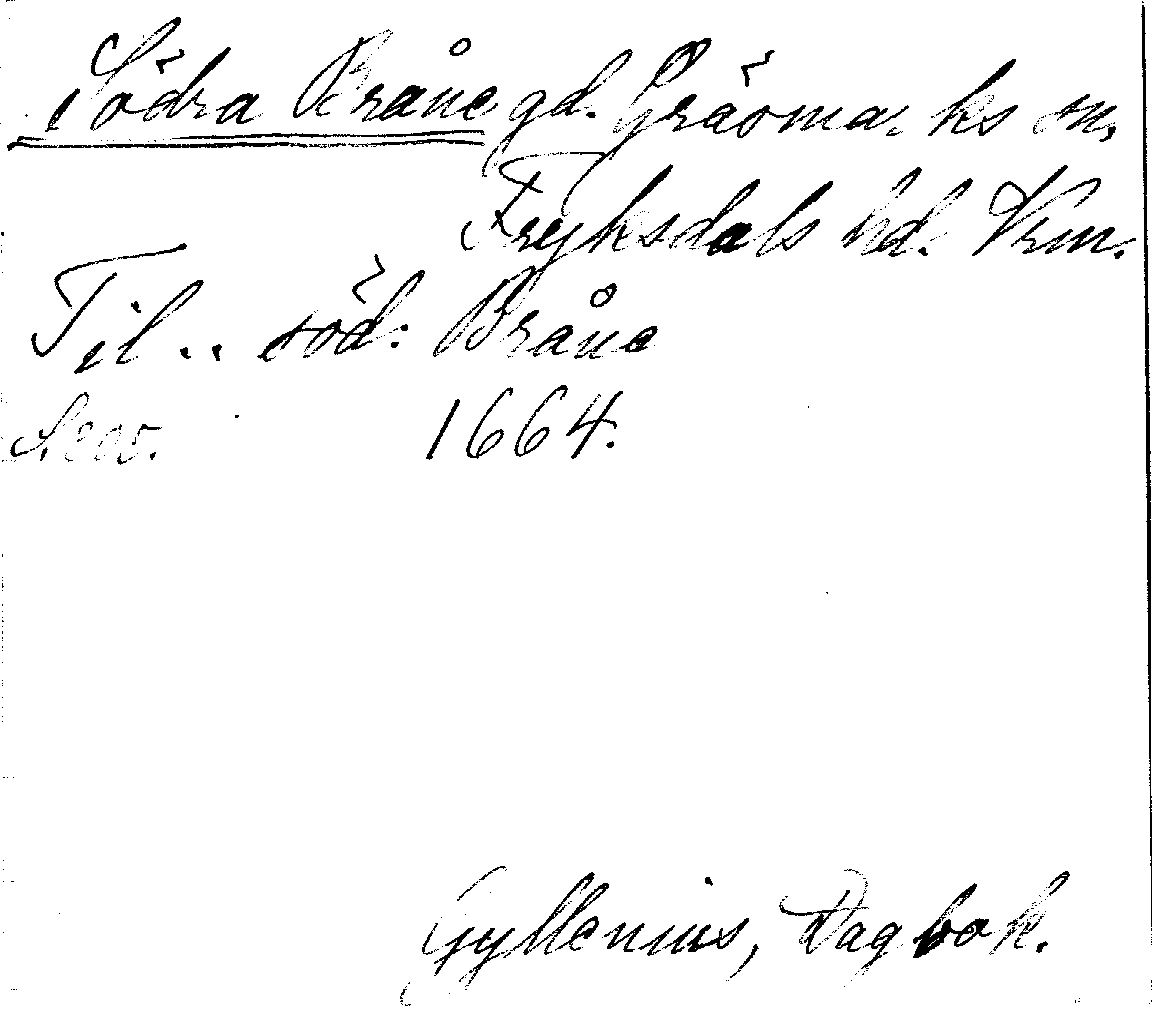 Södra Bråne gd. Gräsmarks sn,
Fryksdals hd. Vrm.
Til .. söd: Bråne
1664.
Gyllenius, Dagbok.